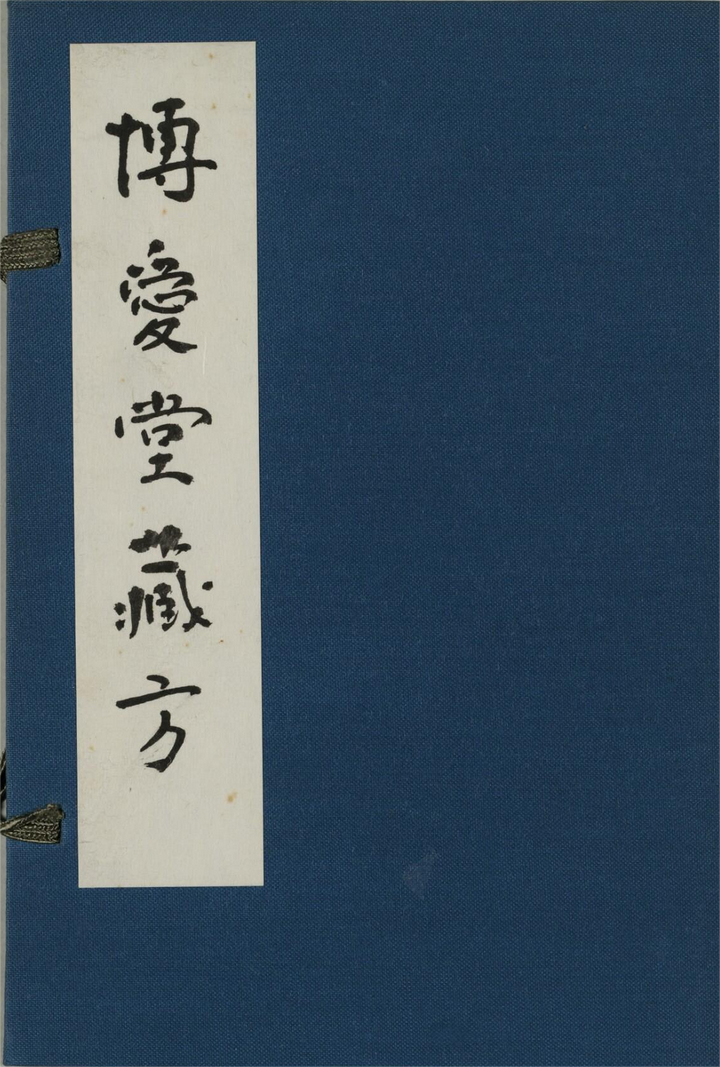 博愛堂藏方